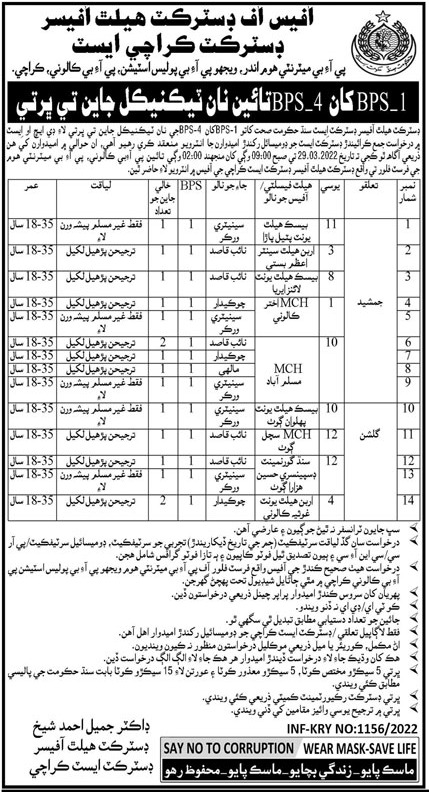 آفيس آف ڊسٽرڪٽ هيلٿ آفيسر
ڊسٽرڪٽ ڪراچي ايسٽ
پي آءِ بي ميٽرنٽي هوم اندر، ويجهو پي آءِ بي پوليس اسٽيشن، پي آءِ بي ڪالوني، ڪراچي.
BPS_1 کان BPS_4 تائين نان ٽيڪنيڪل جاين تي ڀرتي
ڊسٽرڪٽ هيلٿ آفيسر ڊسٽرڪٽ ايسٽ سنڌ حڪومت صحت کاتو BPS-1 کان BPS-4 جي نان ٽيڪنيڪل جاين تي ڀرتي لاءِ ڊي ايڇ او ايسٽ
۾ درخواست جمع ڪرائيندڙ ڊسٽرڪٽ ايسٽ جو ڊوميسائل رکندڙ اميدوارن جا انٽرويو منعقد ڪري رهيو آهي، ان حوالي ۾ اميدوارن کي هن
ذريعي آگاهه ٿو ڪجي ته تاريخ 29.03.2022 تي صبح 09:00 وڳي کان منجهند 02:00 وڳي تائين پي آءِ بي ڪالوني، پي آءِ بي ميٽرنٽي هوم
جي فرسٽ فلور تي واقع ڊسٽرڪٽ هيلٿ آفيسر ايسٽ ڪراچي جي آفيس ۾ انٽرويو لاءِ حاضر ٿين.
نمبر شمار | تعلقو | يوسي | هيلٿ فيسلٽي/ آفيس جو نالو | جاءِ جو نالو | BPS | خالي جاين جو تعداد | لياقت | عمر
1 | جمشيد | 11 | بيسڪ هيلٿ يونٽ پٽيل پاڙا | سينيٽري ورڪر | 1 | 1 | فقط غير مسلم پيشه ورن لاءِ | 18-35 سال
2 | 3 | اربن هيلٿ سينٽر اعظم بستي | نائب قاصد | 1 | 1 | ترجيحن پڙهيل لکيل | 18-35 سال
3 | 8 | بيسڪ هيلٿ يونٽ لائنز ايريا | نائب قاصد | 1 | 1 | ترجيحن پڙهيل لکيل | 18-35 سال
4 | 1 | MCH اختر ڪالوني | چوڪيدار | 1 | 1 | ترجيحن پڙهيل لکيل | 18-35 سال
5 | سينيٽري ورڪر | 1 | 1 | فقط غير مسلم پيشه ورن لاءِ | 18-35 سال
6 | 10 | MCH مسلم آباد | نائب قاصد | 1 | 2 | ترجيحن پڙهيل لکيل | 18-35 سال
7 | چوڪيدار | 1 | 1 | ترجيحن پڙهيل لکيل | 18-35 سال
8 | مالهي | 1 | 1 | ترجيحن پڙهيل لکيل | 18-35 سال
9 | سينيٽري ورڪر | 1 | 1 | فقط غير مسلم پيشه ورن لاءِ | 18-35 سال
10 | گلشن | 10 | بيسڪ هيلٿ يونٽ پهلوان ڳوٺ | سينيٽري ورڪر | 1 | 1 | فقط غير مسلم پيشه ورن لاءِ | 18-35 سال
11 | 12 | MCH سچل ڳوٺ | نائب قاصد | 1 | 1 | ترجيحن پڙهيل لکيل | 18-35 سال
12 | 12 | سنڌ گورنمينٽ ڊسپينسري حسين هزارا ڳوٺ | نائب قاصد | 1 | 1 | ترجيحن پڙهيل لکيل | 18-35 سال
13 | سينيٽري ورڪر | 1 | 1 | فقط غير مسلم پيشه ورن لاءِ | 18-35 سال
14 | 4 | اربن هيلٿ يونٽ غوثيه ڪالوني | چوڪيدار | 1 | 2 | ترجيحن پڙهيل لکيل | 18-35 سال
سڀ جايون ٽرانسفر نه ٿيڻ جوڳيون ۽ عارضي آهن.
درخواست سان گڏ لياقت سرٽيفڪيٽ (جم جي تاريخ ڏيکاريندڙ) تجربي جو سرٽيفڪيٽ، ڊوميسائل سرٽيفڪيٽ/پي آر
سي/سي اين آءِ سي ۽ ٻيون تصديق ٿيل فوٽو ڪاپيون ۽ ٻه تازا فوٽو گرافس شامل هجن.
درخواست هيٺ صحيح ڪندڙ جي آفيس واقع فرسٽ فلور آف پي آءِ بي ميٽرنٽي هوم ويجهو پي آءِ بي پوليس اسٽيشن پي
آءِ بي ڪالوني ڪراچي ۾ مٿي ڄاڻايل شيڊيول تحت پهچڻ گهرجن.
پهريان کان سروس ڪندڙ اميدوار پراپر چينل ذريعي درخواستون ڏين.
ڪو ٽي اي/ڊي اي نه ڏنو ويندو.
جاين جو تعداد دستيابي مطابق تبديل ٿي سگهي ٿو.
فقط لاڳاپيل تعلقي/ڊسٽرڪٽ ايسٽ ڪراچي جو ڊوميسائل رکندڙ اميدوار اهل آهن.
اڻ مڪمل، ڪوريئر يا ميل ذريعي موڪليل درخواستون منظور نه ڪيون وينديون.
هڪ کان وڌيڪ جاءِ لاءِ درخواست ڏيندڙ اميدوار هر هڪ جاءِ لاءِ الڳ الڳ درخواست ڏين.
ڀرتي 5 سيڪڙو مختص ڪوٽا، 5 سيڪڙو معذور ڪوٽا ۽ عورتن لاءِ 15 سيڪڙو ڪوٽا بابت سنڌ حڪومت جي پاليسي
مطابق ڪئي ويندي.
ڀرتي ڊسٽرڪٽ رڪروٽمينٽ ڪميٽي ذريعي ڪئي ويندي.
ڀرتي ۾ ترجيح يوسي وائيز مقامين کي ڏني ويندي.
INF-KRY NO:1156/2022
SAY NO TO CORRUPTION WEAR MASK-SAVE LIFE
ماسڪ پايو - زندگي بچايو - ماسڪ پايو - محفوظ رهو
ڊاڪٽر جميل احمد شيخ
ڊسٽرڪٽ هيلٿ آفيسر
ڊسٽرڪٽ ايسٽ ڪراچي